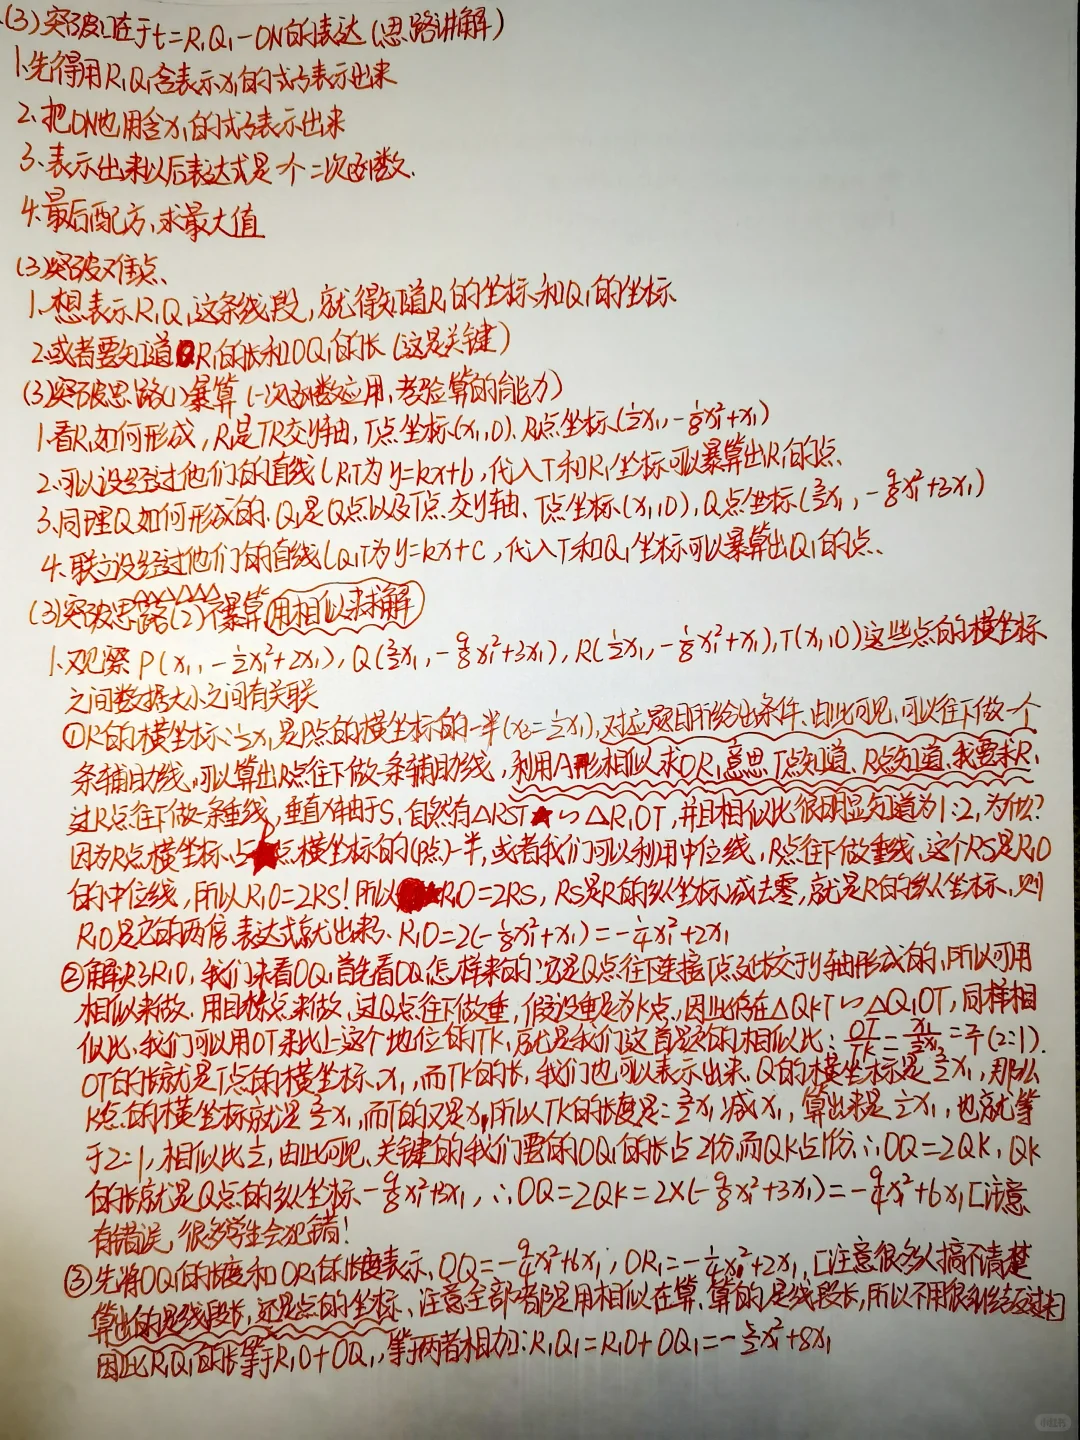 (3)突破口在于t=R₁Q₁-ON的表达(思路讲解)
1.先得用R₁Q₁含表示x₁的式子表示出来
2.把ON也用含x₁的式子表示出来
3.表示出来以后表达式是一个二次函数.
4.最后配方,求最大值
(3)突破难点、
1.想表示R₁Q₁这条线段,就得知道R₁的坐标和Q₁的坐标
2.或者要知道OR₁的长和OQ₁的长(这是关键)
(3)突破思路(1)暴算(一次函数应用,考验算的能力)
1.看R₁如何形成,R₁是TR交y轴,T点坐标(x₁,0).R点坐标(½x₁,-⅛x₁²+x₁)
2.可以设经过他们的直线LR₁T为y=kx+b,代入T和R₁坐标可以暴算出R₁的点、
3.同理Q₁如何形成的.Q₁是Q点以及T点交y轴、T点坐标(x₁,0),Q点坐标(3/2x₁,-9/8x₁²+3x₁)
4.联立设经过他们的直线LQ₁T为y=kx+c,代入T和Q₁坐标可以暴算出Q₁的点、
(3)突破思路(2)不暴算用相似来求解
1.观察P(x₁,-½x₁²+2x₁),Q(3/2x₁,-9/8x₁²+3x₁),R(½x₁,-⅛x₁²+x₁),T(x₁,0)这些点的横坐标
之间数据大小之间有关联
①R的横坐标:½x₁是P点的横坐标的一半(x₂=½x₁),对应题目所给出条件.由此可见,可以往下做一个
条辅助线,可以算出R点往下做一条辅助线,利用A形相似求OR₁意思T点知道、R点知道.我要求R₁
过R点往下做一条垂线,垂直x轴于S,自然有△RST∽△R₁OT,并且相似比很明显知道为1:2,为什么?
因为R点横坐标占点横坐标的(P点)一半,或者我们可以利用中位线,R点往下做垂线,这个RS是R₁O
的中位线,所以R₁O=2RS!所以R₁O=2RS,RS是R的纵坐标减去零,就是R的纵坐标,则
R₁O是它的两倍,表达式就出来了、R₁O=2(-⅛x₁²+x₁)=-¼x₁²+2x₁
②解决了R₁O,我们来看OQ₁首先看OQ₁怎样来的:它是Q点往下连接T点延长交于y轴形成的,所以可用
相似来做.用目标点来做,过Q点往下做垂,假设垂足为K点,因此存在△QKT∽△Q₁OT,同样相
似比,我们可以用OT来比上这个地位的TK,就是我们这首题的相似比:OT/TK=x₁/½x₁=2/1(2:1).
OT的长就是T点的横坐标x₁,而TK的长,我们也可以表示出来.Q的横坐标是3/2x₁,那么
K点的横坐标就是3/2x₁,而T的又是x₁,所以TK的长度是:3/2x₁减x₁,算出来是½x₁,也就等
于2:1,相似比立,由此可见,关键的我们要的OQ₁的长占2份,而QK占1份∴OQ₁=2QK,QK
的长就是Q点的纵坐标-9/8x₁²+3x₁,∴OQ₁=2QK=2×(-9/8x₁²+3x₁)=-9/4x₁²+6x₁[注意
有错误,很多学生会犯错!
③先将OQ₁的长度和OR₁的长度表示、OQ₁=-9/4x₁²+6x₁;OR₁=-¼x₁²+2x₁,[注意很多人搞不清楚
算出的是线段长,还是点的坐标、注意全部都是用相似在算、算的是线段长,所以不用很纠结反过来]
因此R₁Q₁的长等于R₁O+OQ₁,等于两者相加:R₁Q₁=R₁O+OQ₁=-5/2x₁²+8x₁
小红书